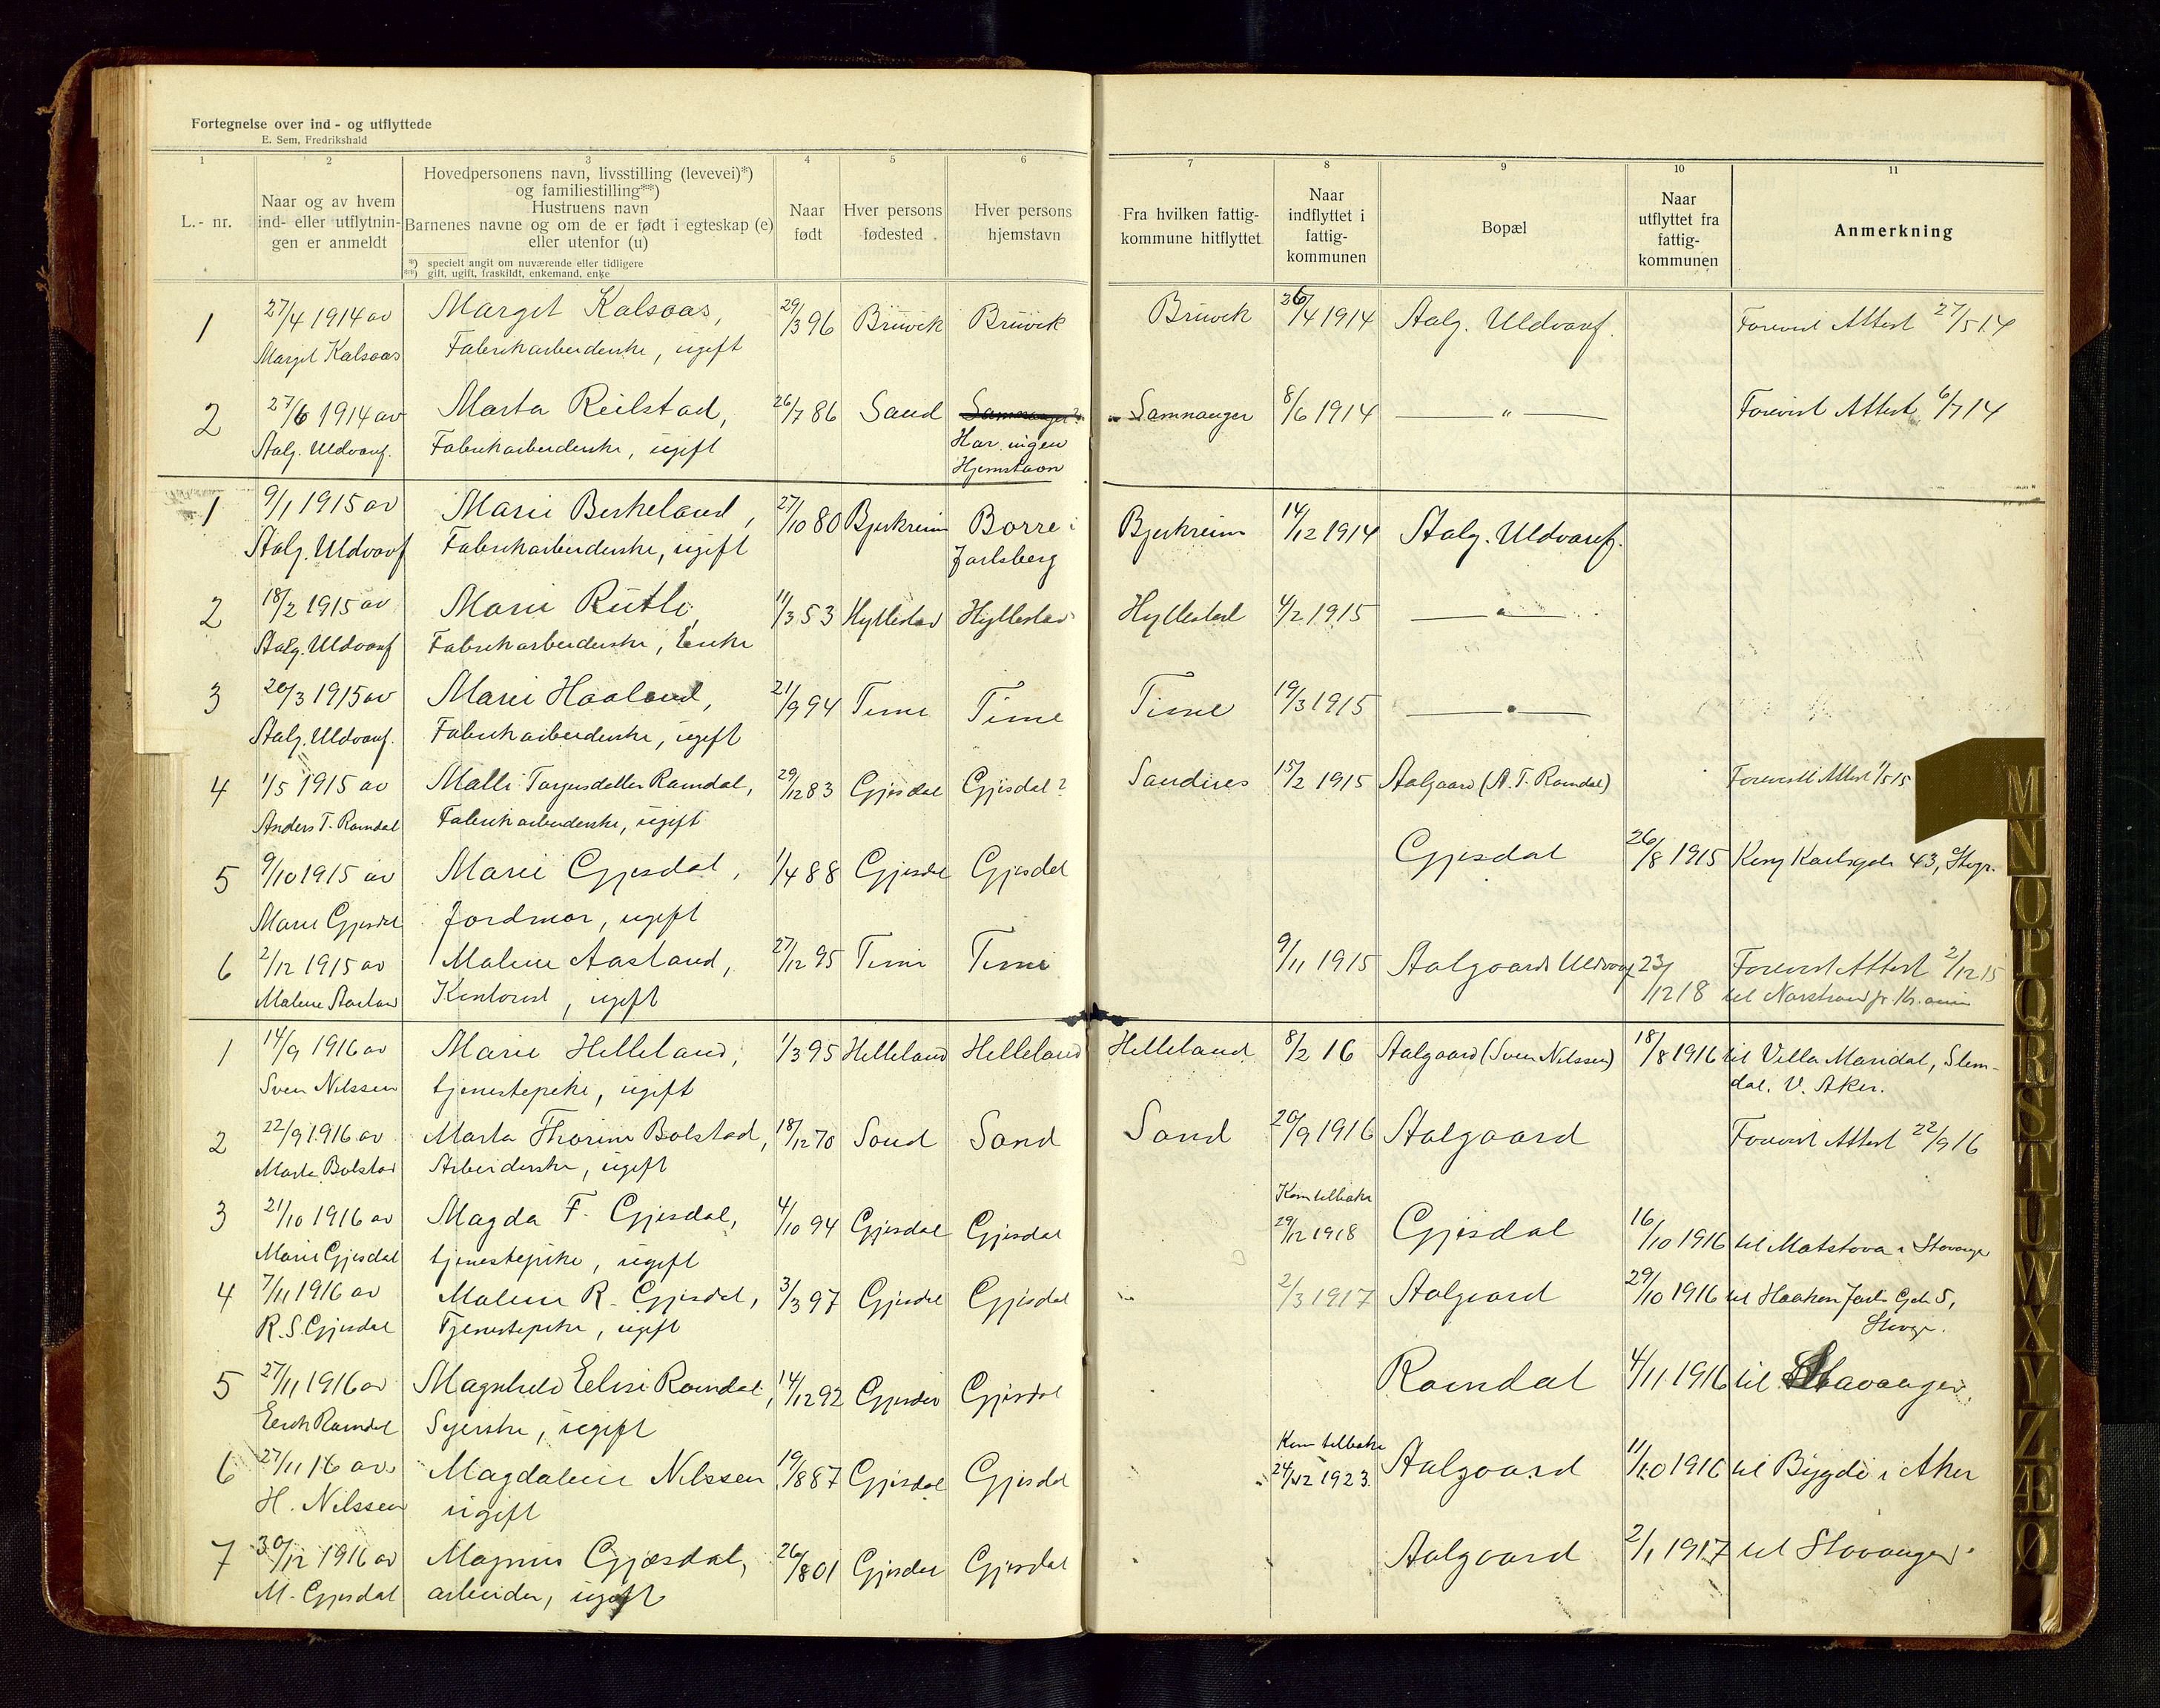 Fortegnelse over ind- og utflyttede
E. Sem, Fredrikshald
1 2 3 4 5 6 7 8 9 10 11
L.-nr.
Naar og av hvem ind- eller utflytningen er anmeldt
Hovedpersonens navn, livsstilling (levevei)*)
og familiestilling**)
Hustruens navn
Barnenes navne og om de er født i egteskap (e)
eller utenfor (u)
*) specielt angit om nuværende eller tidligere
**) gift, ugift, fraskildt, enkemand, enke
Naar født
Hver persons fødested
Hver persons hjemstavn
Fra hvilken fattigkommune hitflyttet
Naar indflyttet i fattigkommunen
Bopæl
Naar utflyttet fra fattigkommunen
Anmerkning
1 27/4 1914 av Margit Kalsaas, 29/3 96 Bruvik Bruvik Bruvik 26/4 1914 Aalg. Uldvaref. Forevist Attest 27/5 14
Margit Kalsaas Fabrikarbeiderske, ugift
2 27/6 1914 av Marta Reilstad, 26/7 86 Sand Samnanger? Samnanger 8/6 1914 — " — Forevist Attest 6/7 14
Aalg. Uldvaref. Fabrikarbeiderske, ugift Har ingen
Hjemstavn
1 9/1 1915 av Marie Berkeland, 27/10 80 Bjerkreim Borre i Bjerkreim 14/12 1914 Aalg. Uldvaref.
Aalg. Uldvaref Fabrikarbeiderske, ugift Jarlsberg
2 18/2 1915 av Marie Rutle, 11/3 53 Hyllestad Hyllestad Hyllestad 4/2 1915 — " —
Aalg. Uldvaref Fabrikarbeiderske, Enke
3 20/3 1915 av Marie Haaland, 21/9 94 Time Time Time 19/3 1915 — " —
Aalg. Uldvaref. Fabrikarbeiderske, ugift
4 1/5 1915 av Malli Torgersdatter Ramdal, 29/12 83 Gjesdal Gjesdal? Sandnes 15/2 1915 Aalgaard (A. T. Ramdal) Forevist Attest 1/5 15
Anders T. Ramdal Fabrikarbeiderske, ugift
5 9/10 1915 av Marie Gjesdal, 1/4 88 Gjesdal Gjesdal Gjesdal 26/8 1915 Kong Karlsgade 43, Stvgr.
Marie Gjesdal Jordmor, ugift
6 2/12 1915 av Malene Aasland, 27/12 95 Time Time 9/11 1915 Aalgaards Uldvaref 23/12 18 Forevist Attest 2/12 15
Malene Aasland Kontorist, ugift til Narstrand
1 14/9 1916 av Marie Helleland, 1/3 95 Helleland Helleland Helleland 8/2 16 Aalgaard (Sven Nilssen) 18/8 1916 til Villa Maridal, Slem-
Sven Nilssen tjenestepike, ugift dal. V. Aker.
2 22/9 1916 av Marta Thorine Bolstad, 18/12 70 Sand Sand Sand 20/9 1916 Aalgaard Forevist Attest 22/9 16
Marta Bolstad Arbeiderske, ugift
3 21/10 1916 av Magda F. Gjesdal, 4/10 94 Gjesdal Gjesdal Kom tilbake 29/12 1918 Gjesdal 16/10 1916 til Matstova i Stavanger
Marie Gjesdal tjenestepike, ugift
4 7/11 1916 av Malene R. Gjesdal, 3/3 97 Gjesdal Gjesdal 2/3 1917 Aalgaard 29/10 1916 til Haakon Jarls Gde 5,
R. S. Gjesdal Tjenestepike, ugift Stavgr.
5 27/11 1916 av Magnhild Eline Ramdal, 14/12 92 Gjesdal Gjesdal Ramdal 4/11 1916 til Stavanger.
Eirik Ramdal Syerske, ugift
6 27/11 16 av Magdalene Nilssen 19/8 87 Gjesdal Gjesdal Kom tilbake 24/12 1923. Aalgaard 11/10 1916 til Bygdø i Aker
H. Nilssen ugift
7 30/12 1916 av Magnus Gjesdal, 26/8 01 Gjesdal Gjesdal Aalgaard 2/1 1917 til Stavanger
M. Gjesdal arbeider, ugift
M
N
O
P
Q
R
S
T
U
W
X
Y
Z
Æ
Ø